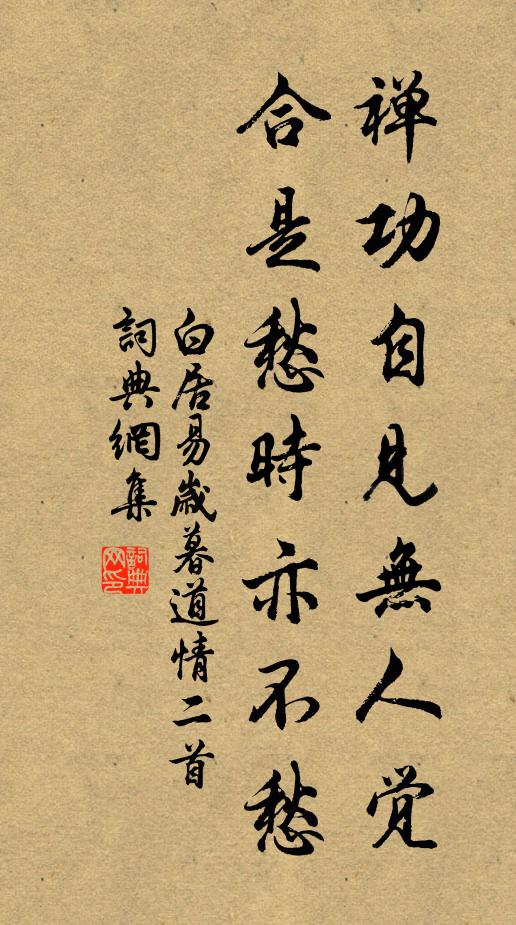 禅功自见無人觉
合是愁時亦不愁
白居易歲暮道情二首
詞典網集
詞典網印